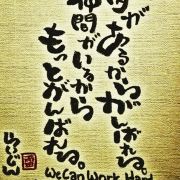 夢があるからがんばれる。
仲間がいるから
もっとがんばれる。
We Can Work Hard